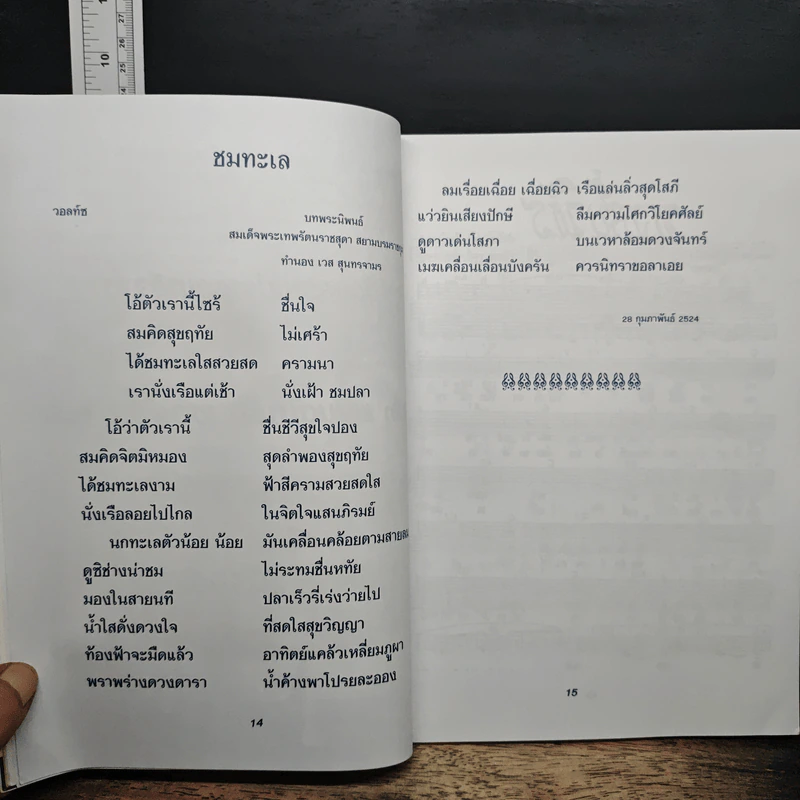 10
27
26
25
24
ชมทะเล
วอลท์ซ
บทพระนิพนธ์
สมเด็จพระเทพรัตนราชสุดา สยามบรมราช
ทำนอง เวส สุนทรจามร
โอ้ตัวเรานี้ไซร้ ชื่นใจ
สมคิดสุขฤทัย ไม่เศร้า
ได้ชมทะเลใสสวยสด ครามนา
เรานั่งเรือแต่เช้า นั่งเฝ้า ชมปลา
โอ้ว่าตัวเรานี้ ชื่นชีวีสุขใจปอง
สมคิดจิตมิหมอง สุดลำพองสุขฤทัย
ได้ชมทะเลงาม ฟ้าสีครามสวยสดใส
นั่งเรือลอยไปไกล ในจิตใจแสนภิรมย์
นกทะเลตัวน้อย น้อย มันเคลื่อนคล้อยตามสายลม
ดูซิช่างน่าชม ไม่ระทมชื่นหทัย
มองในสายนที ปลาเร็วรี่เร่งว่ายไป
น้ำใสดั่งดวงใจ ที่สดใสสุขวิญญา
ท้องฟ้าจะมืดแล้ว อาทิตย์แคล้วเหลี่ยมภูผา
พราพร่างดวงดารา น้ำค้างพาโปรยละออง
14
ลมเรื่อยเฉื่อย เฉื่อยฉิว เรือแล่นลิ่วสุดโสภี
แว่วยินเสียงปักษี ลืมความโศกวิโยคศัลย์
ดูดาวเด่นโสภา บนเวหาล้อมดวงจันทร์
เมฆเคลื่อนเลื่อนบังครัน ควรนิทราขอลาเอย
28 กุมภาพันธ์ 2524
15